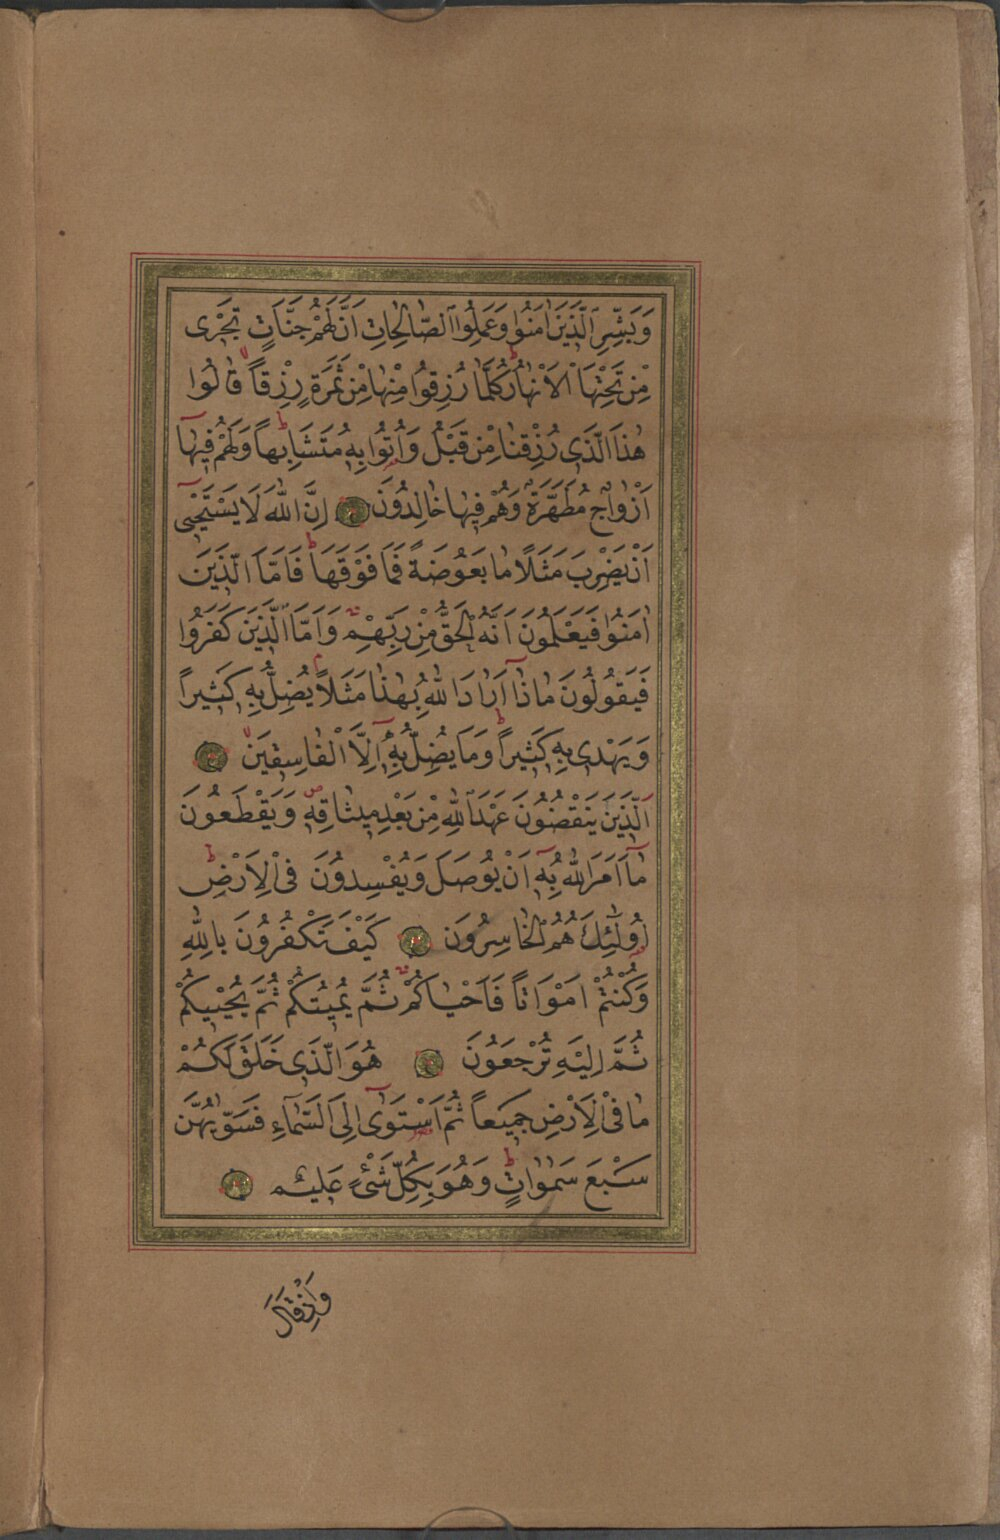 وَبَشِّرِ الَّذِينَ اٰمَنُوا وَعَمِلُوا الصَّالِحَاتِ اَنَّ لَهُمْ جَنَّاتٍ تَجْرِى
مِنْ تَحْتِهَا الْاَنْهَارُ كُلَّمَا رُزِقُوا مِنْهَا مِنْ ثَمَرَةٍ رِزْقاً قَالُوا
هٰذَا الَّذِى رُزِقْنَا مِنْ قَبْلُ وَاُتُوا بِهِ مُتَشَابِهاً وَلَهُمْ فِيهَا
اَزْوَاجٌ مُطَهَّرَةٌ وَهُمْ فِيهَا خَالِدُونَ اِنَّ اللّٰهَ لَا يَسْتَحْيى
اَنْ يَضْرِبَ مَثَلًا مَا بَعُوضَةً فَمَا فَوْقَهَا فَاَمَّا الَّذِينَ
اٰمَنُوا فَيَعْلَمُونَ اَنَّهُ الْحَقُّ مِنْ رَبِّهِمْ وَاَمَّا الَّذِينَ كَفَرُوا
فَيَقُولُونَ مَاذَا اَرَادَ اللّٰهُ بِهٰذَا مَثَلاً يُضِلُّ بِهِ كَثِيراً
وَيَهْدِى بِهِ كَثِيراً وَمَا يُضِلُّ بِهِ اِلَّا الْفَاسِقِينَ
اَلَّذِينَ يَنْقُضُونَ عَهْدَ اللّٰهِ مِنْ بَعْدِ مِيثَاقِهِ وَيَقْطَعُونَ
مَا اَمَرَ اللّٰهُ بِهِ اَنْ يُوصَلَ وَيُفْسِدُونَ فِى الْاَرْضِ
اُولٰئِكَ هُمُ الْخَاسِرُونَ كَيْفَ تَكْفُرُونَ بِاللّٰهِ
وَكُنْتُمْ اَمْوَاتاً فَاَحْيَاكُمْ ثُمَّ يُمِيتُكُمْ ثُمَّ يُحْيِيكُمْ
ثُمَّ اِلَيْهِ تُرْجَعُونَ هُوَ الَّذِى خَلَقَ لَكُمْ
مَا فِى الْاَرْضِ جَمِيعاً ثُمَّ اسْتَوٰى اِلَى السَّمَاءِ فَسَوّٰيهُنَّ
سَبْعَ سَمٰوَاتٍ وَهُوَ بِكُلِّ شَىْءٍ عَلِيمٌ
وَاِذْ قَالَ